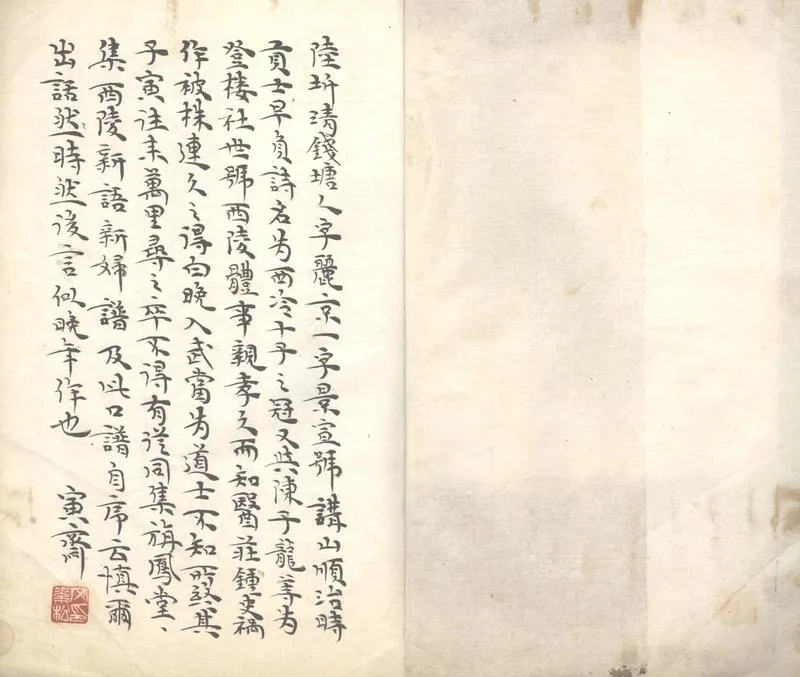 陸圻清錢塘人字麗京一字景宣號講山順治時
貢士早負詩名为西冷十子之冠又與陳子龍等为
登樓社世號西陵體事親孝久而知醫莊鍾史禍
作被株連久之得白晚入武當为道士不知所終其
子寅往来萬里尋之卒不得有從同集旃鳳堂、
集西陵新語新婦譜及此口譜自序云慎爾
出話然一時然後言似晚年作也
寅齋